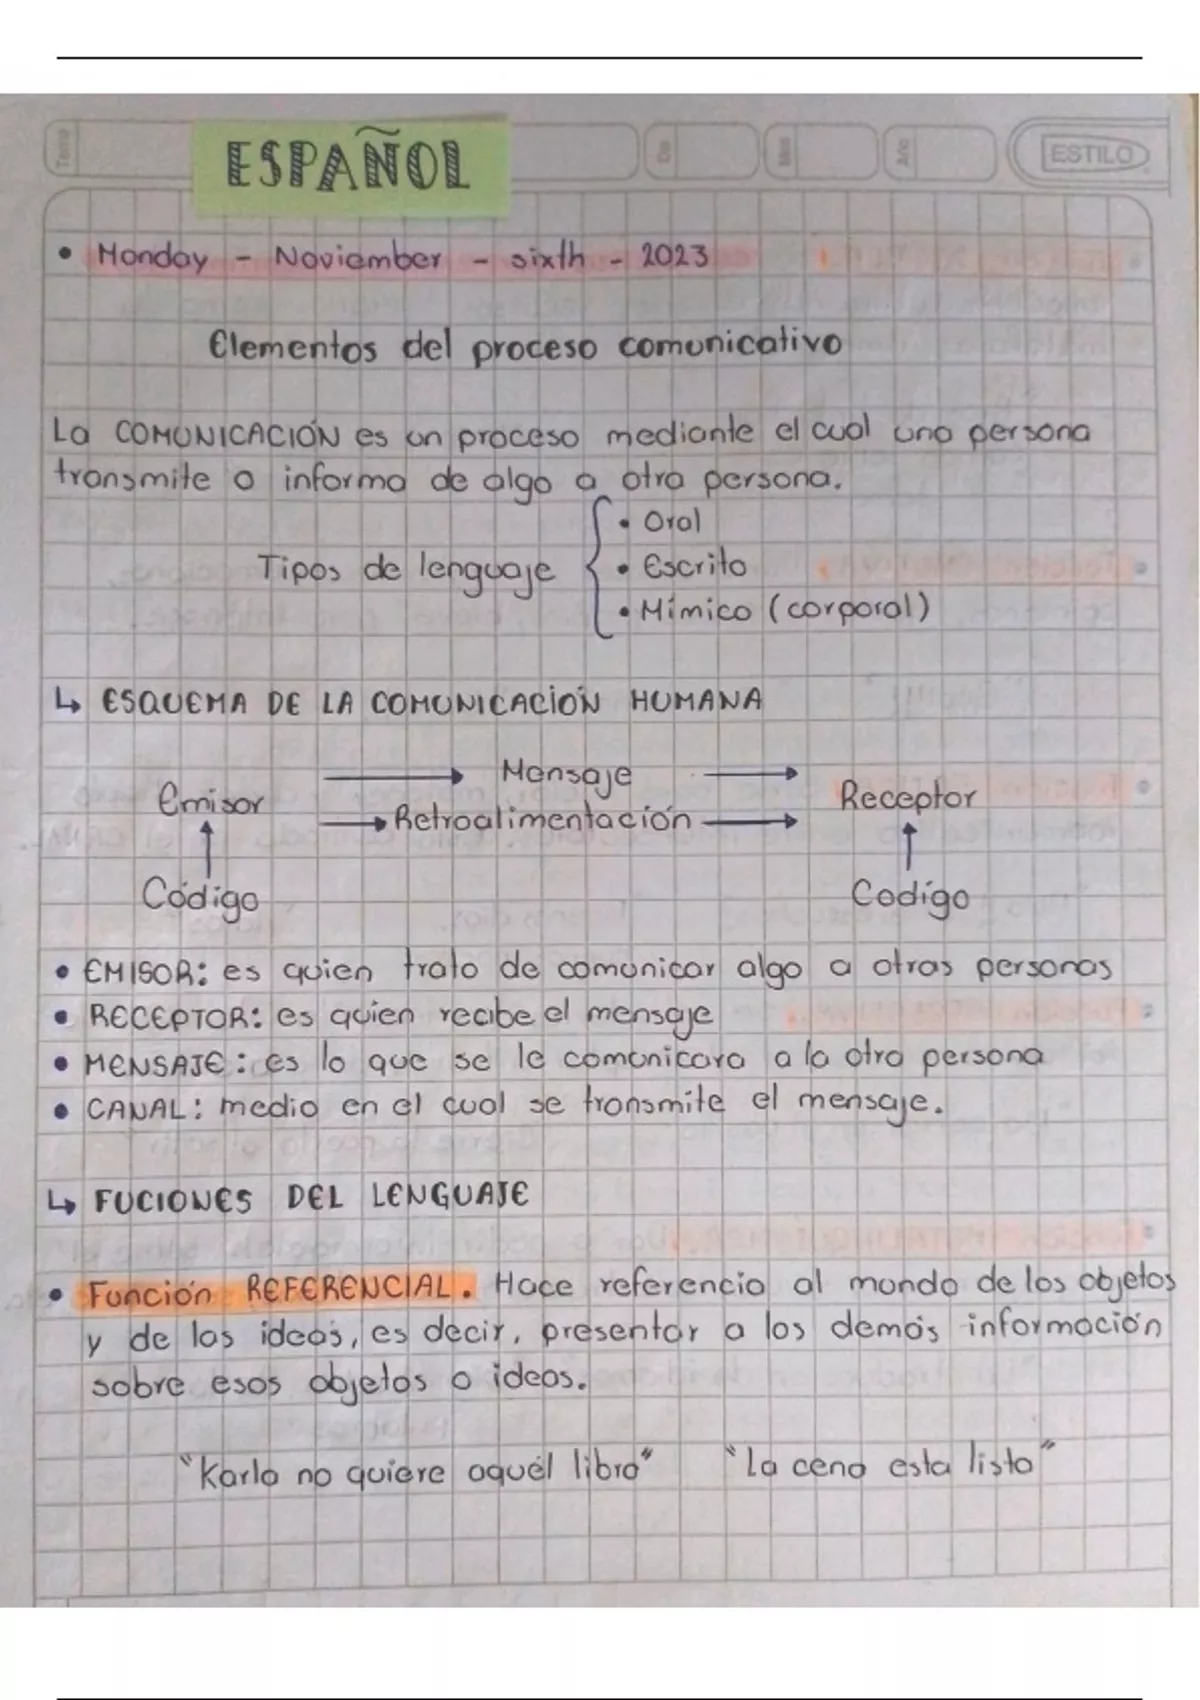 Tema
Día
Mes
Año
ESTILO
ESPAÑOL
• Monday - Noviember - sixth - 2023
Elementos del proceso comunicativo
La COMUNICACIÓN es un proceso mediante el cual una persona
transmite o informa de algo a otra persona.
• Oral
Tipos de lenguaje • Escrito
• Mímico (corporal)
↳ ESQUEMA DE LA COMUNICACIÓN HUMANA
Emisor → Mensaje → Receptor
→ Retroalimentación →
Código Codigo
• EMISOR: es quien trata de comunicar algo a otras personas
• RECEPTOR: es quien recibe el mensaje
• MENSAJE: es lo que se le comunicara a la otra persona
• CANAL: medio en el cual se transmite el mensaje.
↳ FUCIONES DEL LENGUAJE
• Función REFERENCIAL. Hace referencia al mundo de los objetos
y de las ideas, es decir, presentar a los demás información
sobre esos objetos o ideas.
"Karla no quiere aquél libro" "La cena esta lista"